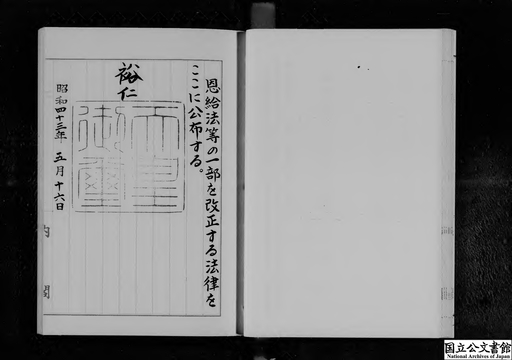 恩給法等の一部を改正する法律を
ここに公布する。
裕仁
天皇御璽
昭和四十三年五月十六日
内閣
国立公文書館
National Archives of Japan